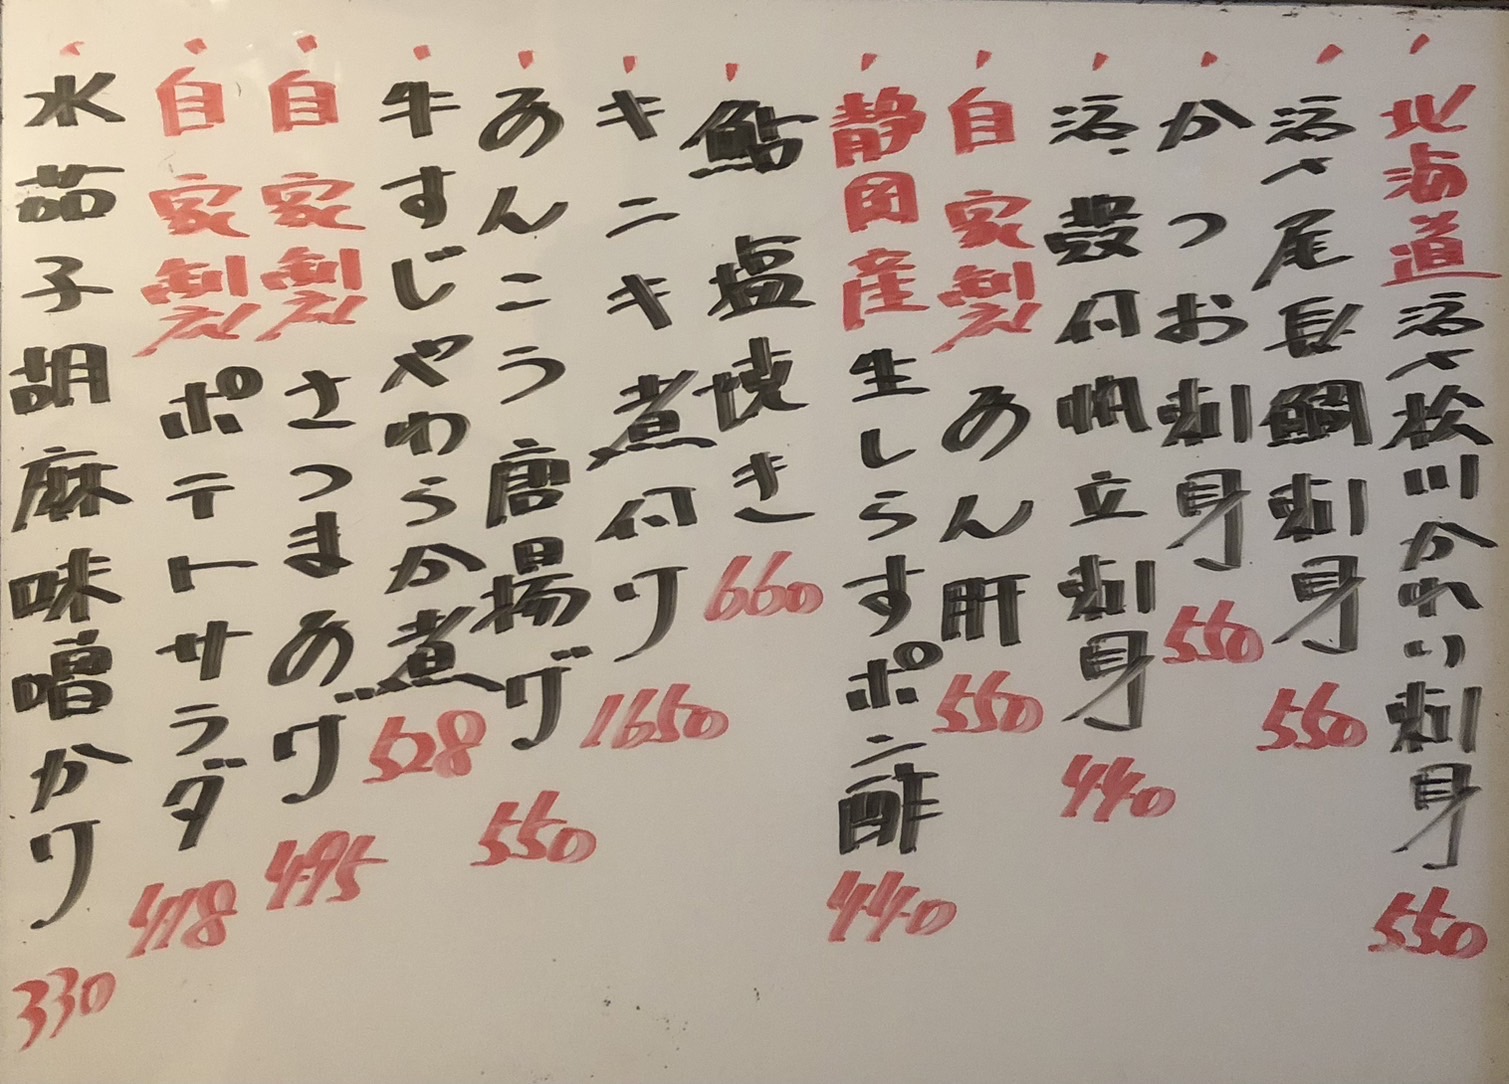 ・北海道活〆松川かれい刺身 550
・活〆尾長鯛刺身 550
・かつお刺身 550
・活・殻付帆立刺身 440
・自家製 あん肝 550
・静岡産生しらすポン酢 440
・鮎 塩焼き 660
・キンキ煮付ケ 1650
・あんこう唐揚ゲ 550
・牛すじやわらか煮 528
・自家製 さつまあゲ 495
・自家製 ポテトサラダ 418
・水茄子胡麻味噌かケ 330